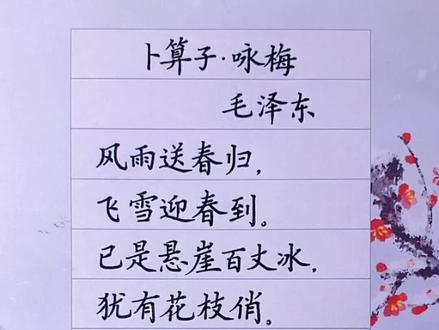 卜算子·咏梅
毛泽东
风雨送春归,
飞雪迎春到。
已是悬崖百丈冰,
犹有花枝俏。